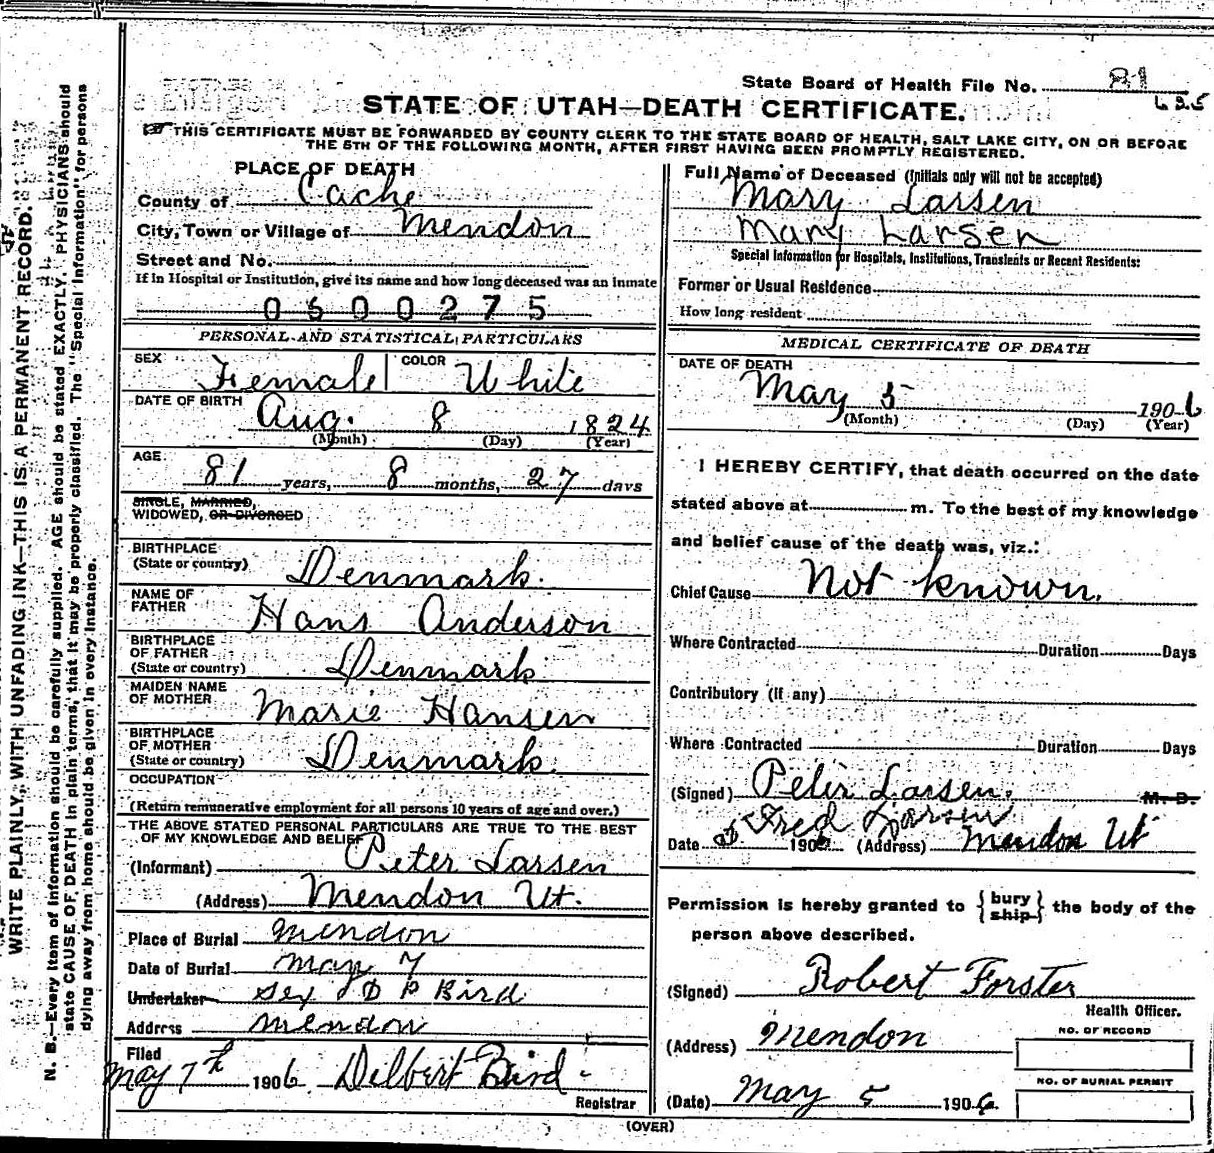 State Board of Health File No. 81
635
STATE OF UTAH—DEATH CERTIFICATE.
THIS CERTIFICATE MUST BE FORWARDED BY COUNTY CLERK TO THE STATE BOARD OF HEALTH, SALT LAKE CITY, ON OR BEFORE
THE 5TH OF THE FOLLOWING MONTH, AFTER FIRST HAVING BEEN PROMPTLY REGISTERED.
WRITE PLAINLY, WITH UNFADING INK—THIS IS A PERMANENT RECORD.
N. B.—Every item of information should be carefully supplied. AGE should be stated EXACTLY. PHYSICIANS should
state CAUSE OF DEATH in plain terms, that it may be properly classified. The "Special Information" for persons
dying away from home should be given in every instance.
PLACE OF DEATH
County of Cache
City, Town or Village of Mendon
Street and No.
If in Hospital or Institution, give its name and how long deceased was an inmate
0600275
PERSONAL AND STATISTICAL PARTICULARS
SEX Female COLOR White
DATE OF BIRTH Aug. 8 1824
(Month) (Day) (Year)
AGE 81 years, 8 months, 27 days
SINGLE, MARRIED,
WIDOWED, OR DIVORCED
BIRTHPLACE
(State or country) Denmark.
NAME OF
FATHER Hans Anderson
BIRTHPLACE
OF FATHER
(State or country) Denmark
MAIDEN NAME
OF MOTHER Marie Hansen
BIRTHPLACE
OF MOTHER
(State or country) Denmark.
OCCUPATION
(Return remunerative employment for all persons 10 years of age and over.)
THE ABOVE STATED PERSONAL PARTICULARS ARE TRUE TO THE BEST
OF MY KNOWLEDGE AND BELIEF
(Informant) Peter Larsen
(Address) Mendon Ut.
Place of Burial Mendon
Date of Burial May 7
Undertaker Sex J D P Bird
Address Mendon
Filed
May 7th 1906 Delbert Bird
Registrar
Full Name of Deceased (Initials only will not be accepted)
Mary Larsen
Mary Larsen
Special Information for Hospitals, Institutions, Transients or Recent Residents:
Former or Usual Residence
How long resident
MEDICAL CERTIFICATE OF DEATH
DATE OF DEATH
May 5 1906
(Month) (Day) (Year)
I HEREBY CERTIFY, that death occurred on the date
stated above at m. To the best of my knowledge
and belief cause of the death was, viz.:
Chief Cause Not known.
Where Contracted Duration Days
Contributory (if any)
Where Contracted Duration Days
(Signed) Peter Larsen. M. D.
Fred Larsen
Date 190 (Address) Mendon Ut
Permission is hereby granted to { bury
ship } the body of the
person above described.
(Signed) Robert Forster
Health Officer.
(Address) Mendon
NO. OF RECORD
(Date) May 5 1906
NO. OF BURIAL PERMIT
(OVER)